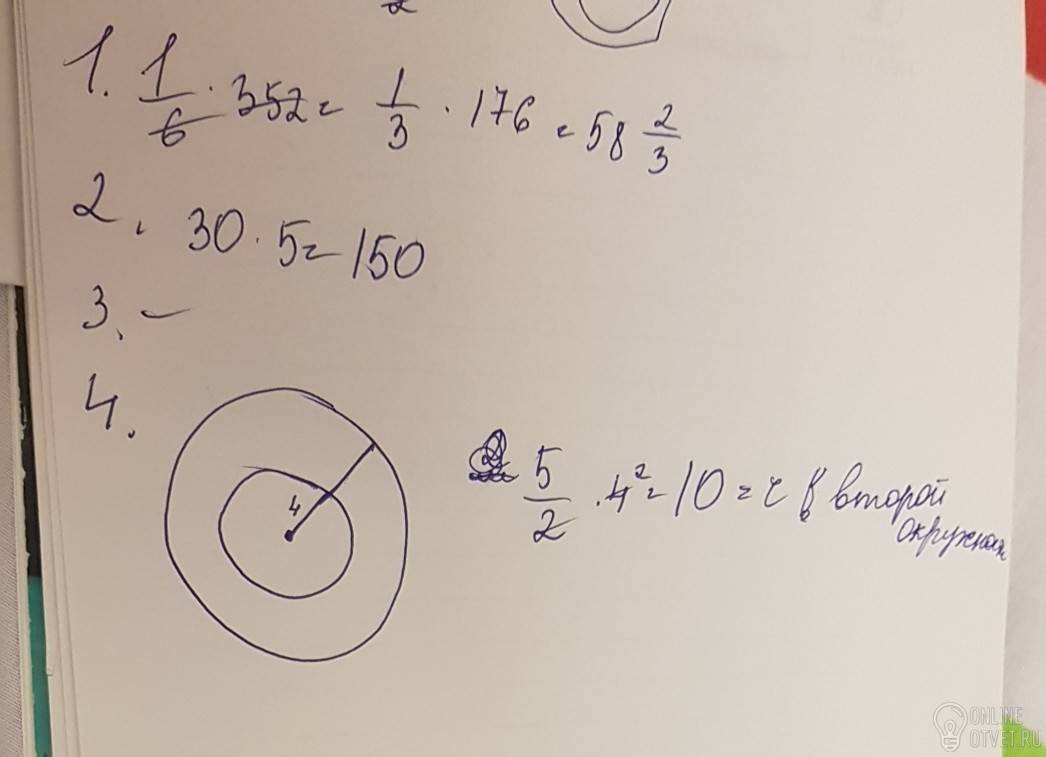 2
1. 1/6 · 352 = 1/3 · 176 = 58 2/3
2. 30 · 5 = 150
3. –
4.
4
5/2 · 4² = 10 = r в второй
окружнос
ONLINE
OTVET.RU